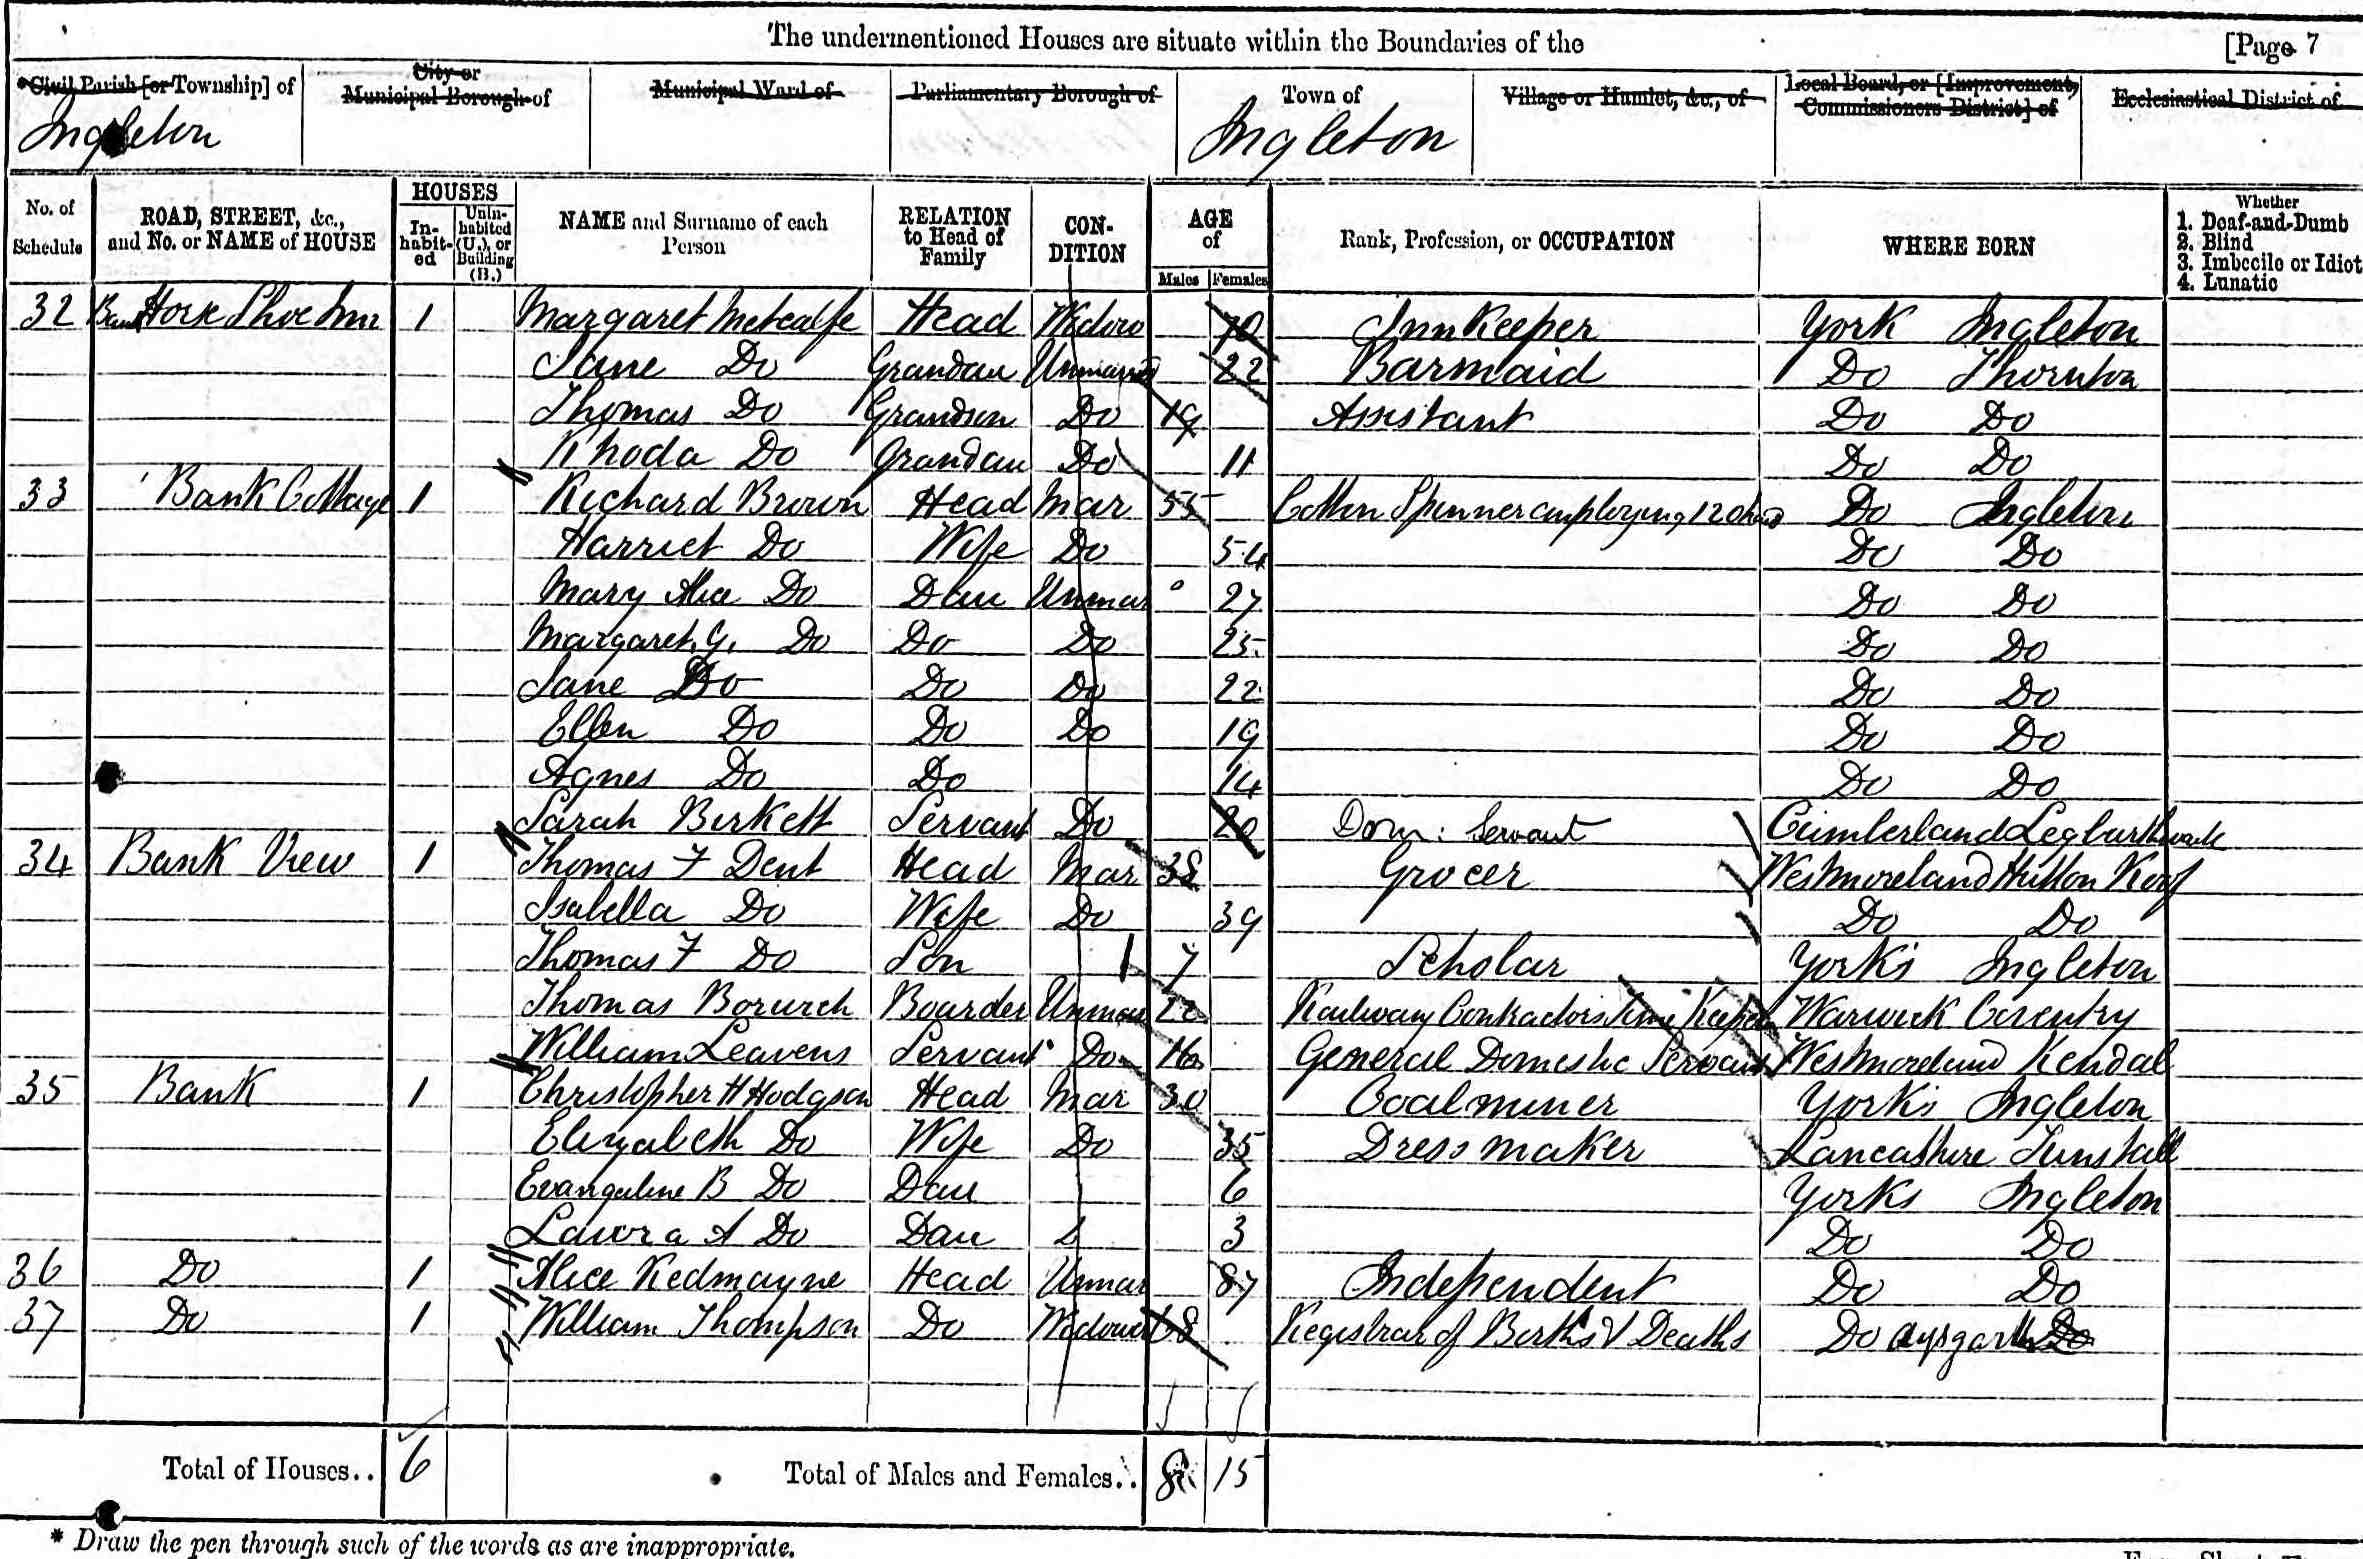 The undermentioned Houses are situate within the Boundaries of the [Page 7
Civil Parish [or Township] of City or Municipal Borough of Municipal Ward of Parliamentary Borough of Town of Village or Hamlet, &c., of Local Board, or [Improvement, Commissioners District] of Ecclesiastical District of
Ingleton Ingleton
No. of Schedule ROAD, STREET, &c., and No. or NAME of HOUSE HOUSES Inhabited Uninhabited (U.), or Building (B.) NAME and Surname of each Person RELATION to Head of Family CONDITION AGE of Males Females Rank, Profession, or OCCUPATION WHERE BORN Whether 1. Deaf-and-Dumb 2. Blind 3. Imbecile or Idiot 4. Lunatic
32 Bank Horse Shoe Inn 1 Margaret Metcalfe Head Widow 70 InnKeeper York Ingleton
Jane Do Grandau Unmarried 22 Barmaid Do Thornton
Thomas Do Grandson Do 19 Assistant Do Do
Rhoda Do Grandau Do 11 Do Do
33 Bank Cottage 1 Richard Brown Head Mar 55 Cotton Spinner employing 120 Do Ingleton
Harriet Do Wife Do 54 Do Do
Mary Alice Do Dau Unmar 27 Do Do
Margaret G. Do Do Do 25 Do Do
Jane Do Do Do 22 Do Do
Ellen Do Do Do 19 Do Do
Agnes Do Do 14 Do Do
Sarah Birkett Servant Do 20 Dom: Servant Cumberland Legburthwaite
34 Bank View 1 Thomas F Dent Head Mar 38 Grocer Westmoreland Hutton Roof
Isabella Do Wife Do 39 Do Do
Thomas F Do Son 7 Scholar Yorks Ingleton
Thomas Borwich Boarder Unmar Railway Contractors Time Keeper Warwick Coventry
William Leavens Servant Do 16 General Domestic Servant Westmoreland Kendal
35 Bank 1 Christopher H Hodgson Head Mar 30 Coalminer Yorks Ingleton
Elizabeth Do Wife Do 35 Dressmaker Lancashire Tunstall
Evangeline B Do Dau 6 Yorks Ingleton
Lawra A Do Dau 3 Do Do
36 Do 1 Alice Redmayne Head Unmar 87 Independent Do Do
37 Do 1 William Thompson Do Widower 68 Registrar of Births & Deaths Do Aysgarth Do
Total of Houses.. 6 Total of Males and Females.. 8 15
* Draw the pen through such of the words as are inappropriate.